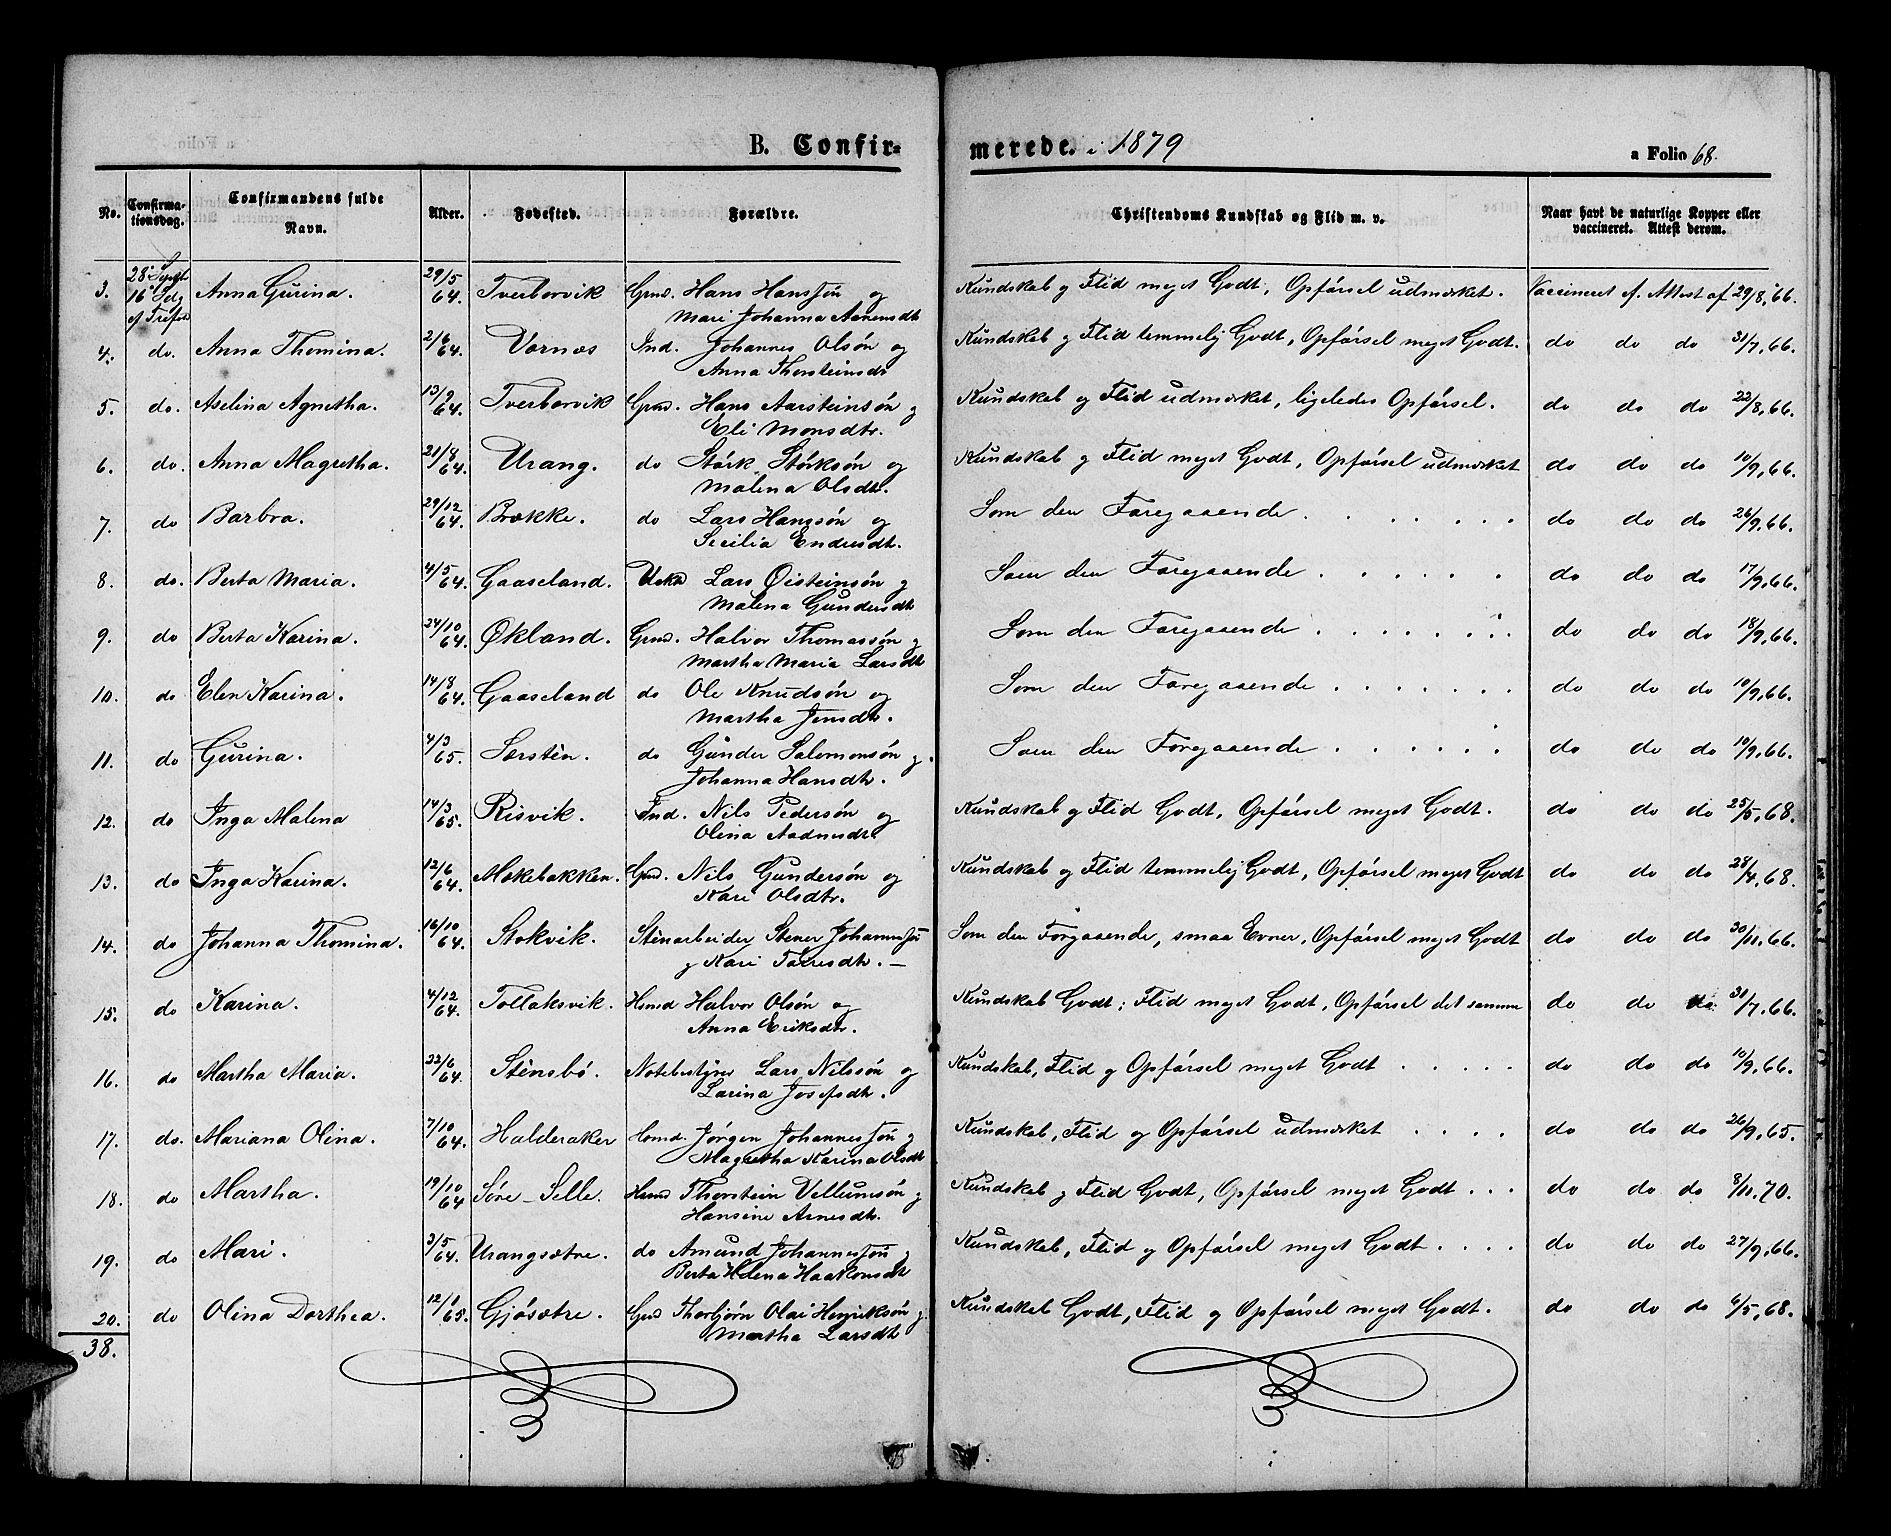 B. Confir-
merede. i 1879
a Folio 68.
No. Confirma-tionsdag. Confirmandens fulde Navn. Alder. Fødested. Forældre. Christendoms Kundskab og Flid m. v. Naar havt de naturlige Kopper eller vaccineret. Attest derom.
3. 28' Septbr 16' Sdg ef Trefol Anna Gurina. 29/5 64. Tverborvik Grnd. Hans Hanssøn og Kundskab og Flid meget Godt, Opførsel udmærket. Vaccineret ef. Attest af 29/8, 66.
Mari Johanna
4. do. Anna Thomina. 2/6 64. Vornæs Ind. Johannes Olsøn og Kundskab og Flid temmelig Godt, Opførsel meget Godt. do do do 31/7, 66.
Anna Thorsteinsdr
5. do. Aselina Agnetha. 13/9 64. Tverborvik Grnd. Hans Aarsteinsøn g Kundskab og Flid udmærket, ligeledes Opførsel. do do do 22/8, 66.
Eli Monsdtr.
6. do. Anna Magretha. 21/8 64. Urang. do Størk Størksøn og Kundskab g Flid meget Godt, Opførsel udmærket do do do 10/9, 66.
Malena Olsdtr.
7. do Barbra. 29/12 64. Brække. do Lars Hanssøn og Som den Foregaaende do do do 26/9, 66.
Secilia Endresdt.
8. do. Berta Maria. 4/5 64. Gaaseland. Lars Øisteinsøn g Som den Foregaaende do do do 17/9, 66.
Malena Gundersdt
9. do Berta Karina. 24/10 64. Økland. Grnd. Halvor Thomassøn g Som den Foregaaende do do do 18/9, 66.
Martha Maria Larsdt
10. do Elen Karina. 14/8 64. Gaaseland do Ole Knudsøn og Som den Foregaaende do do do 10/9, 66.
Martha Jensdtr.
11. do Gurina. 4/3 65. Særsten. do Gunder Salomonsøn g. Som den Foregaaende do do do 10/9, 66.
Johanna Hansdtr.
12. do Inga Malena 14/3 65. Risvik. Ind. Nils Pedersøn og Kundskab g Flid Godt, Opførsel meget Godt. do do do 25/5, 68.
Olina Aadnesdtr.
13. do Inga Karina. 12/6 64. Møkebakken. Grnd. Nils Gundersøn og Kundskab og Flid temmelig Godt, Opførsel meget Godt do do do 28/4, 68.
Kari Olsdtr.
14. do Johanna Thomina. 16/10 64. Stokvik. Stenarbeider Stener Johannessøn Som den Forgaaende, smaa Evner, Opførsel meget Godt do do do 30/11, 66.
g Kari Torresdtr. —
15. do Karina. 4/12 64. Tollaksvik. Hmd Halvor Olsøn og Kundskab Godt; Flid meget Godt, Opførsel det samme do do do. 31/7, 66.
Anna Eriksdtr.
16. do Martha Maria. 22/6 64. Stensbø. Notebestyrer Lars Nilssøn og Kundskab, Flid g Opførsel meget Godt do do do 10/9, 66.
Larina Josefsdtr.
17. do. Mariana Olina. 7/10 64. Halderaker Hsmd. Jørgen Johannessøn g Kundskab, Flid og Opførsel udmærket do do do 26/9, 65.
Magretha Karina Olsdt
18. do Martha. 19/10 64 Søre-Selle. Hsmd Thorstein Vellumsøn g Kundskab g Flid Godt, Opførsel meget Godt do do do 8/11, 70.
Hansine Arnesdtr.
19. do Mari. 3/5 64. Urangsætre. do Amund Johannessøn g Kundskab, Flid og Opførsel meget Godt do do do 27/9, 66.
Berta Helena Haakonsdt
20. do Olina Dorthea. 12/1 65. Gjøsætre. Grnd Thorbjørn Olai Henriksøn g. Kundskab Godt, Flid g Opførsel meget Godt. do do do 6/5, 68.
Martha Larsdt
38.